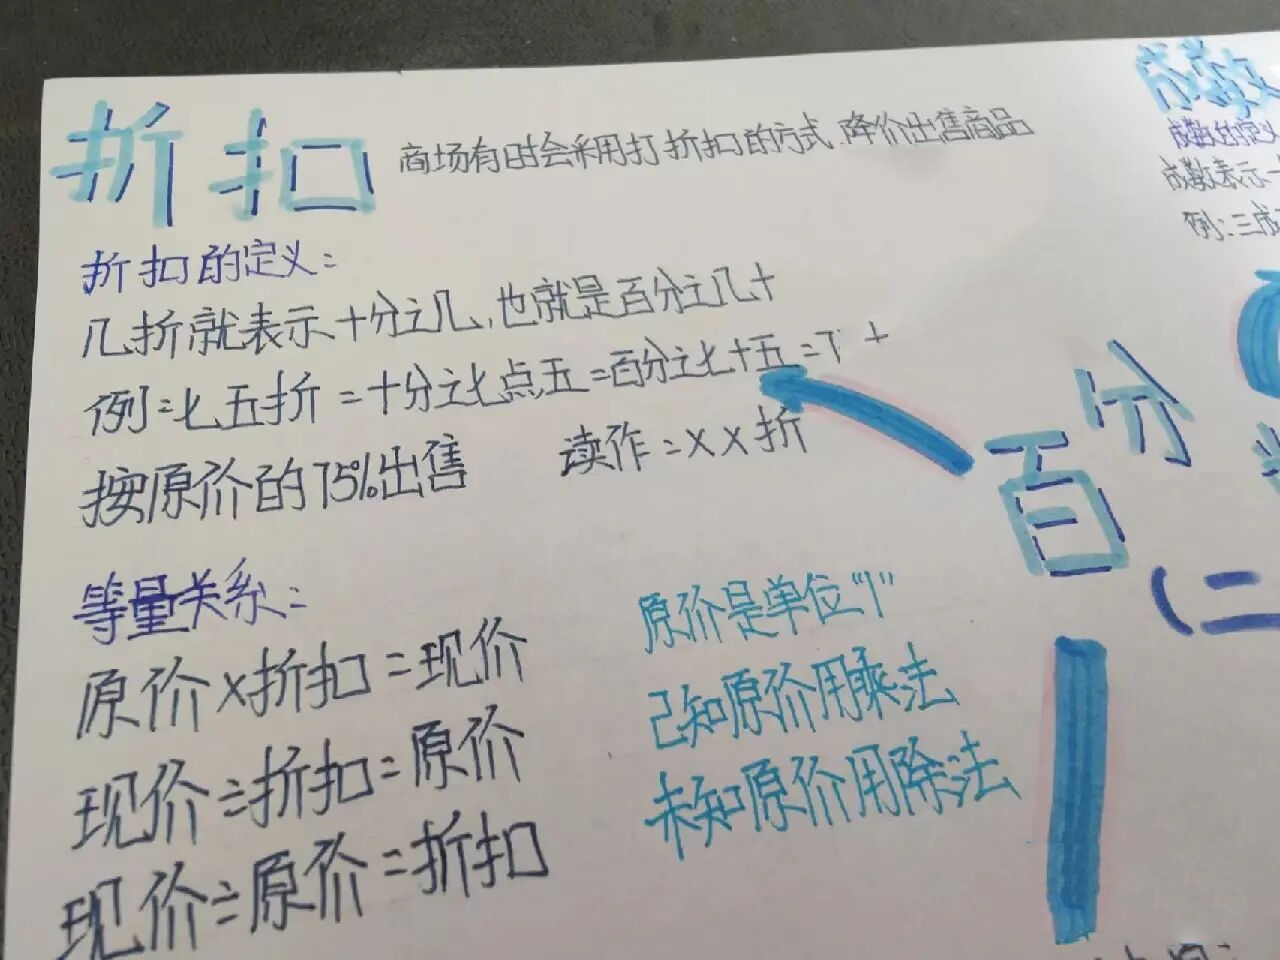 折扣
商场有时会采用打折扣的方式,降价出售商品
折扣的定义:
几折就表示十分之几,也就是百分之几十
例:七五折=十分之七点五=百分之七十五=
按原价的75%出售
读作:××折
等量关系:
原价×折扣=现价
现价÷折扣=原价
现价÷原价=折扣
原价是单位"1"
己知原价用乘法
未知原价用除法
百分
(二
成数
成数的定义
成数表示一
例:三成